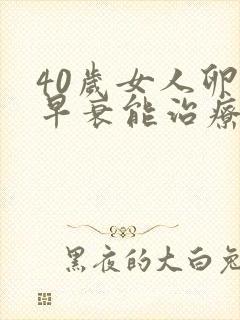 40歲女人卵
早衰能治療
黑夜的大白兔